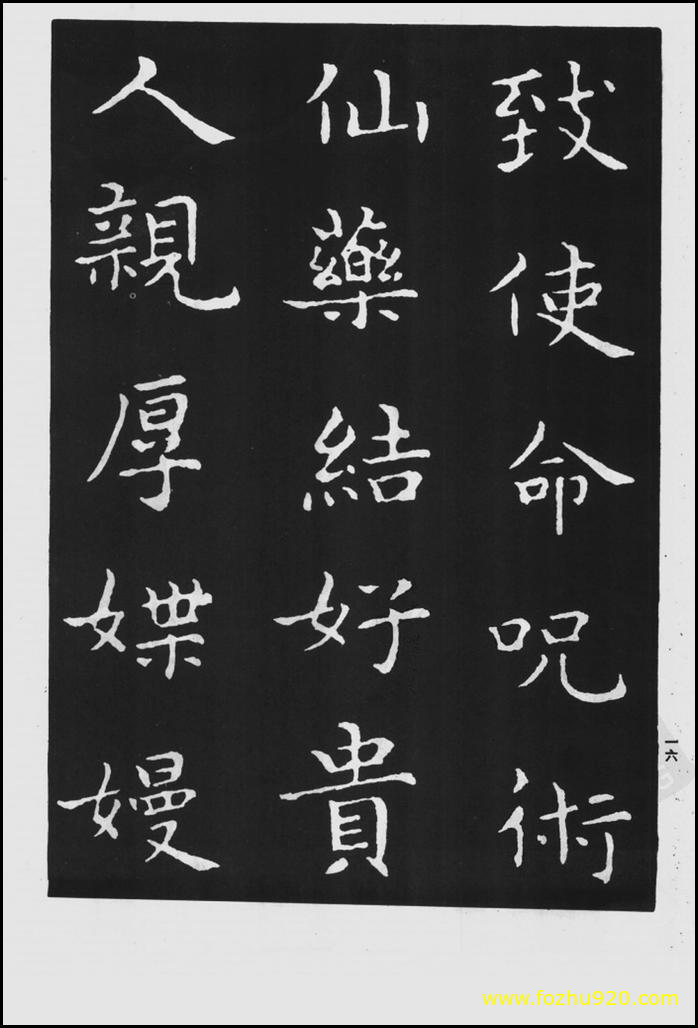 致使命呪術
仙藥結好貴
人親厚媟嫚
一六
www.fozhu920.com